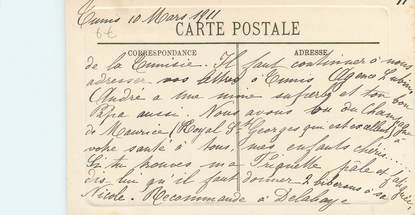 Tunis 10 Mars 1911
6€
CARTE POSTALE
CORRESPONDANCE ADRESSE
de la Tunisie. Il faut continuer à nous
adresser vos lettres à Tunis Agence Lubin
André a une mine superbe et ton bon
Papa aussi. Nous avons bu du Champagne
de Maurice (Royal St Georges qui est excellent) à
votre santé à tous, mes enfants chéris...
Si tu trouves ma pâle et
dis lui qu'il faut donner 2 biberons à sa
Nicole. Recommande à Delahaye